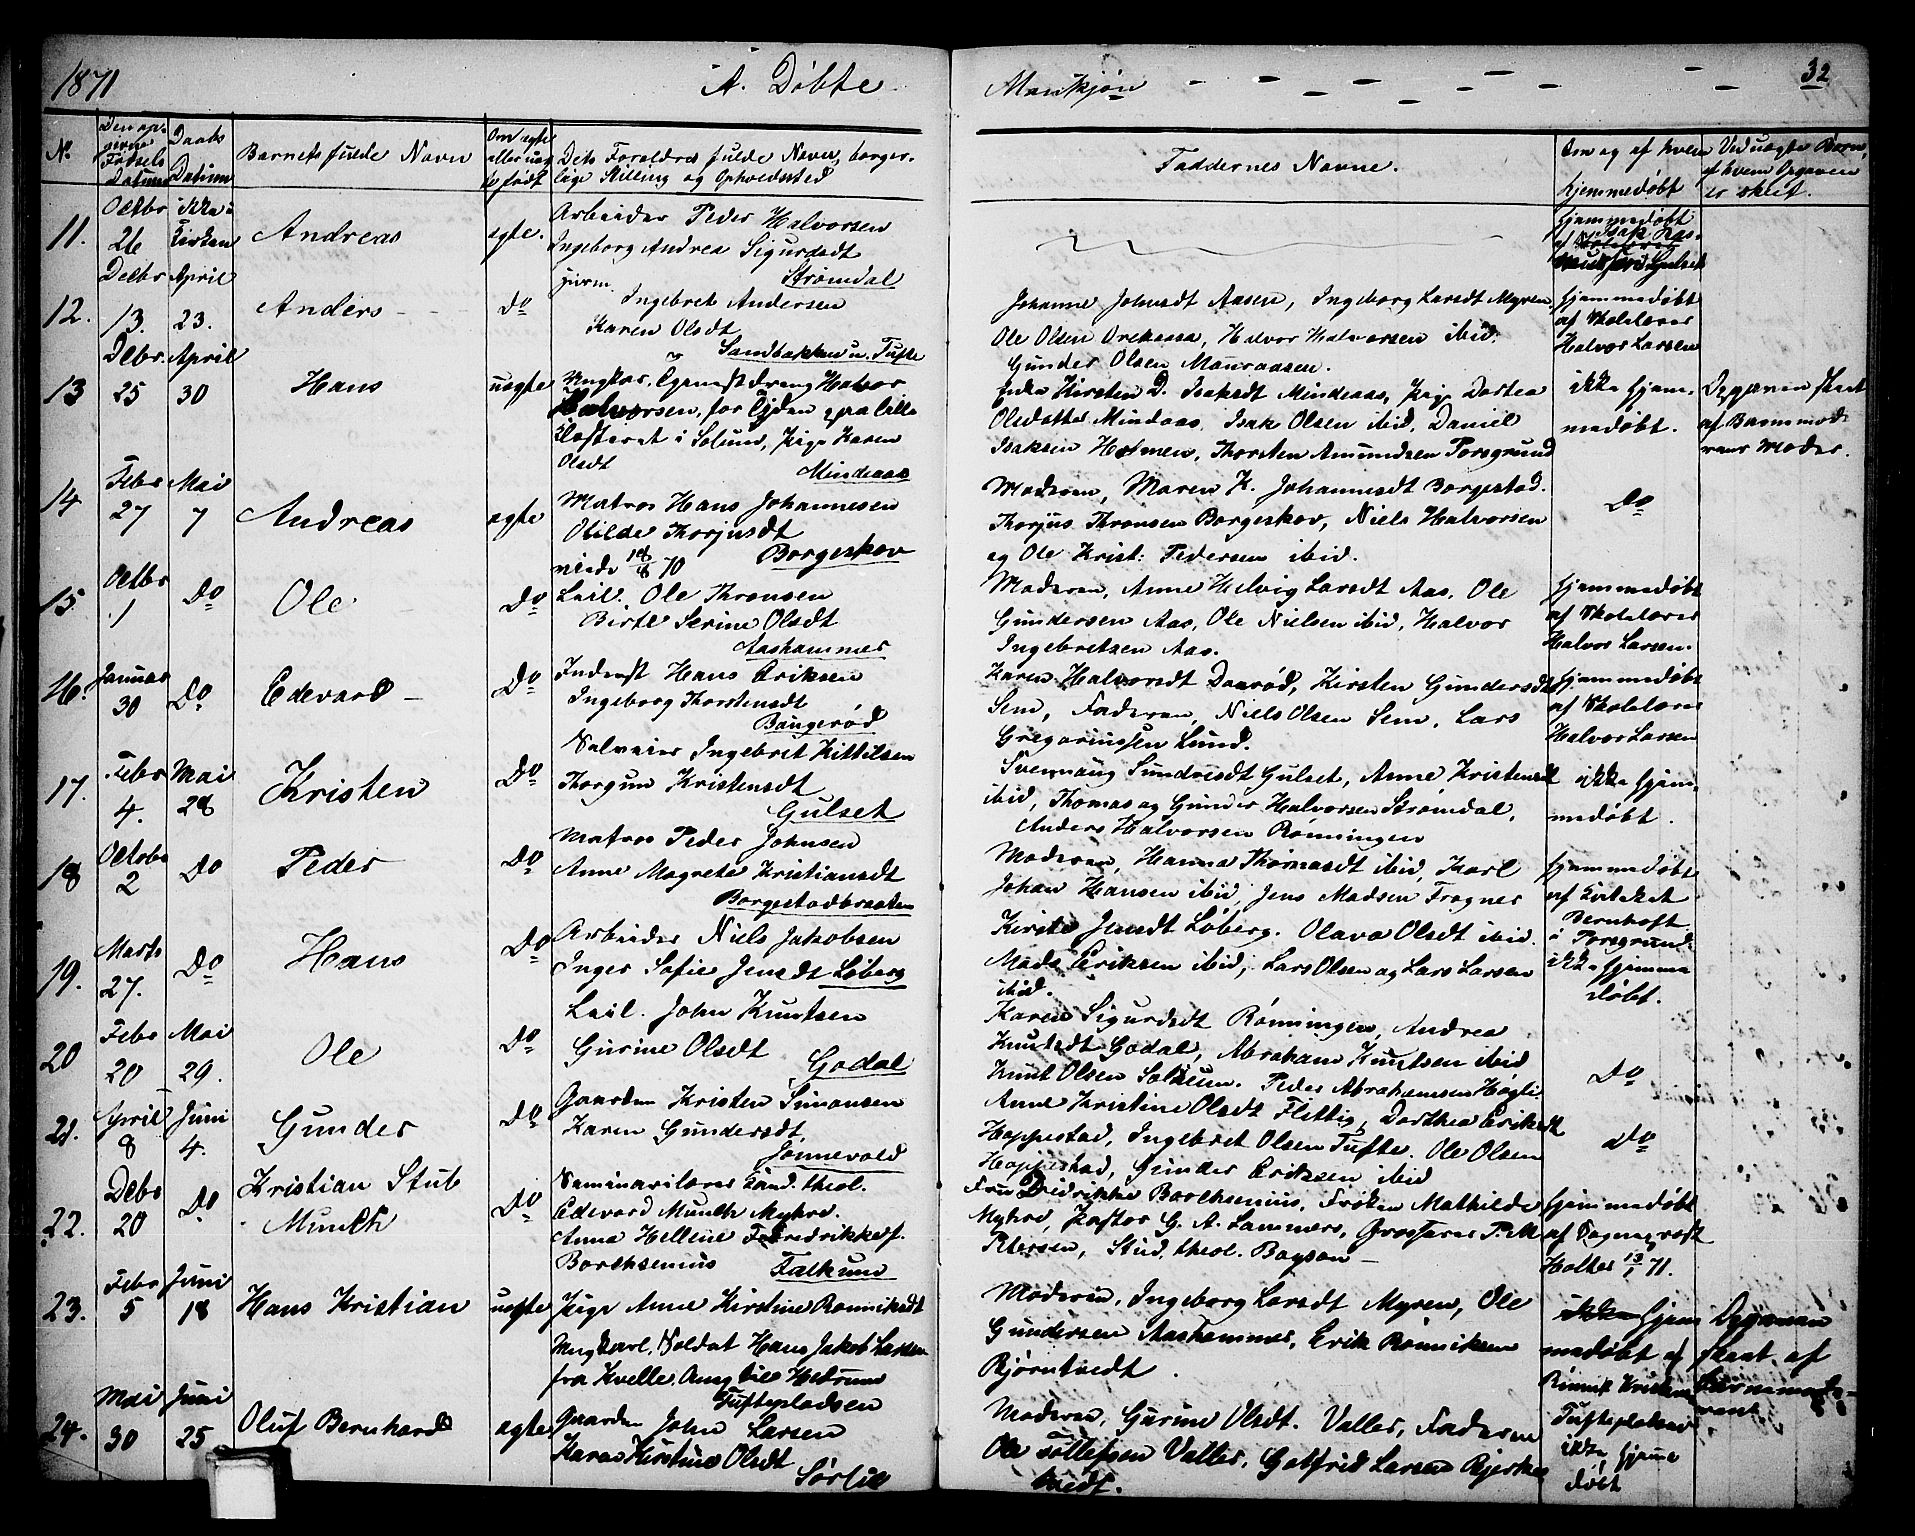 1871
A. Døbte
Mandkjøn
32
No.
Den op-
givne
Fødsels
Datum
Daabs
Datum
Barnets fulde Navn
Om ægte
eller uæg
te født
Dets Forældres fulde Navn, borger-
lige Stilling og Opholdssted
Faddernes Navne.
Om og af hvem
hjemmedøbt
Ved uægte Børn,
af hvem Opgaven
er skeet.
11.
Octbr
26
ikke i
Kirken
Andreas
ægte.
Arbeider Peder Halvorsen
Ingeborg Andrea Sigurdsdt
Strømdal
hjemmedøbt
af Isak
Gulset
12.
Decbr
13.
April
23.
Anders
Do
Ingebret Andersen
Karen Olsdt
Sandbakken u. Tufte
Johanne Johnsdt Aasen, Ingeborg Larsdt Myren
Ole Olsen, Halvor Halvorsen ibid.
Gunder Olsen Mauraasen.
hjemmedøbt
af Skolelærer
Halvor Larsen
13
Decbr.
25
April
30
Hans
uægte
Ungkar, Halvor
Halvorsen, for Tiden paa lille
Klosteret i Solum, Pige Karen
Olsdt
Mindeaas
Enke Kirsten D. Isaksdt Mindeaas, Pige Dortea
Olsdatter Mindaas, Isak Olsen ibid, Daniel
Isaksen Holmen, Thorsten Amundsen Porsgrund
ikke hjem-
medøbt.
Opgaven skeet
af Barnemod-
rens Moder.
14
Febr
27
Mai
7
Andreas
ægte
Matros Hans Johannesen
Otilde Thorjusdt
viede 18/8 70
Borgeskov
Moderen, Maren K. Johannesdt Borgestad.
Thorjus Thronsen Borgeskov, Niels Halvorsen
og Ole Krist: Pedersen ibid.
Do
15.
Octbr
1
Do
Ole
Do
Leil. Ole Thronsen
Berte Serine Olsdt
Aashammer
Moderen, Anne Helvig Larsdt Aas, Ole
Gundersen Aas, Ole Nielsen ibid, Halvor
Ingebretsen Aas.
hjemmedøbt
af Skolelærer
Halvor Larsen.
16.
Januar
30
Do
Edevard
Do
Inderst Hans Eriksen
Ingeborg Thorstensdt
Bangerød
Karen Halvorsdt Daarød, Kirsten Gundersdt
Sem, Faderen, Niels Olsen Sem, Lars
Gregoriussen Lund.
hjemmedøbt
af Skolelærer
Halvor Larsen
17.
Febr
4.
Mai
28
Kristen
Do
Selveier Ingebret Kittilsen
Thorgun Kristensdt
Gulset
Svennaug Sundvesdt Gulset, Anne Kristensdt
ibid, Thomas og Gunder Halvorsen Strømdal,
Anders Halvorsen Rønningen
ikke hjem-
medøbt.
18
Octobr
2
Do
Peder
Do
Matros Peder Johnsen
Anne Magrete Kristiansdt
Borgestadbraaten
Moderen, Hanna Thomasdt ibid, Karl
Johan Hansen ibid, Jens Madsen Frogner
hjemmedøbt
af
Bernhoft
i Porsgrund.
19.
Marts
27.
Do
Hans
Do
Arbeider Niels Jakobsen
Inger Sofie Jensdt Løberg
Kirsten Jensdt Løberg. Olava Olsdt ibid.
Mads Eriksen ibid, Lars Olsen og Lars Larsen
ibid.
ikke hjemme
døbt.
20
Febr
20
Mai
29.
Ole
Do
Leil. John Knutsen
Gurine Olsdt
Godal
Karen Sigurdsdt Rønningen, Andrea
Knutsdt Godal, Abraham Knutsen ibid
Knut Olsen Solheim. Peder Abrahamsen Høgli
Do
21.
April
8
Juni
4.
Gunder
Do
Gaardm Kristen Simonsen
Karen Gundersdt
Jønnevold
Anne Kristine Olsdt Flittig, Dorthea Eriksdt
Hoppestad, Ingebret Olsen Tufte. Ole Olsen
Hoppestad, Gunder Eriksen ibid
Do
22.
Debr
20
Do
Kristian Stub
Munch
Do
Seminarilærer Cand. theol.
Edevard Munch Myhre.
Anna Hellene Fredrikke f.
Borchsenius
Falkum
Fru Didrikke Borchsenius, Frøken Mathilde
Myhre, Pastor G. A. Lammers, Grosserer P. M
Petersen, Stud. theol. Boyson
hjemmedøbt
af Sogneprest
Holter 13/1 71.
23.
Febr
5
Juni
18
Hans Kristian
uægte
Pige Anne Kirstine Rønniksdt
Ungkarl, Soldat Hans Jakob Larsen
fra Kvelle Anex til Hedrum
Tuftepladsen
Moderen, Ingeborg Larsdt Myren, Ole
Gundersen Aashammer, Erik Rønniksen
Bjørntvedt
ikke hjem
medøbt af
Rønnik Kristen
Tuftepladsen
Opgaven
skeet af
Barnemode-
ren
24.
Mai
30
Juni
25
Oluf Bernhard
ægte
Gaardm John Larsen
Karen Kirstine Olsdt
Sørlie
Moderen, Gurine Olsdt. Valler, Faderen
Ole Tollefsen Valler, Gotfrid Larsen Bjerke
tvedt.
ikke hjemme
døbt